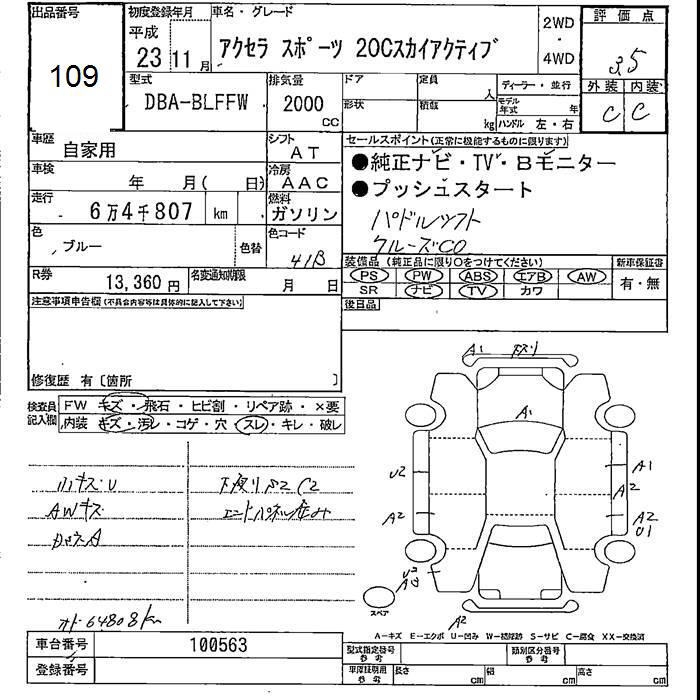 出品番号
109
初度登録年月
平成
23 11 月
車名・グレード
アクセラ スポーツ 20Cスカイアクティブ
2WD
・
4WD
評価点
3.5
外装 内装
C C
型式
DBA-BLFFW
排気量
2000
CC
ドア
形状
定員
人
積載
kg
ディーラー・並行
モデル年式 年
ハンドル 左・右
車歴
自家用
シフト
AT
車検
年 月( 日)
冷房
AAC
走行
6万4千807 km
燃料
ガソリン
色
ブルー
色替
色コード
41B
R券
13,360 円
名変通知期限
月 日
セールスポイント(正常に機能するものに限ります)
●純正ナビ・TV・Bモニター
●プッシュスタート
パドルシフト
クルーズCO
装備品(純正品に限り○をつけてください)
PS PW ABS エアB AW
SR ナビ TV カワ
新車保証書
有・無
後日品
注意事項申告欄(不具合内容等は具体的に記入して下さい)
修復歴 有〔箇所 〕
検査員記入欄
FW キズ・飛石・ヒビ割・リペア跡・×要
内装 キズ・汚レ・コゲ・穴・スレ・キレ・破レ
小キズ U
AWキズ
下廻りS2 C2
エンドパネル歪み
オド 64808km
A1 下スリ
A1
U2
A2
A1
A2
A2
U1
A2
スペア
A-キズ E-エクボ U-凹み W-補修跡 S-サビ C-腐食 XX-交換済
車台番号
100563
登録番号
型式指定番号
参考
類別区分番号
参考
車庫証明用
参考
長さ cm
幅 cm
高さ cm